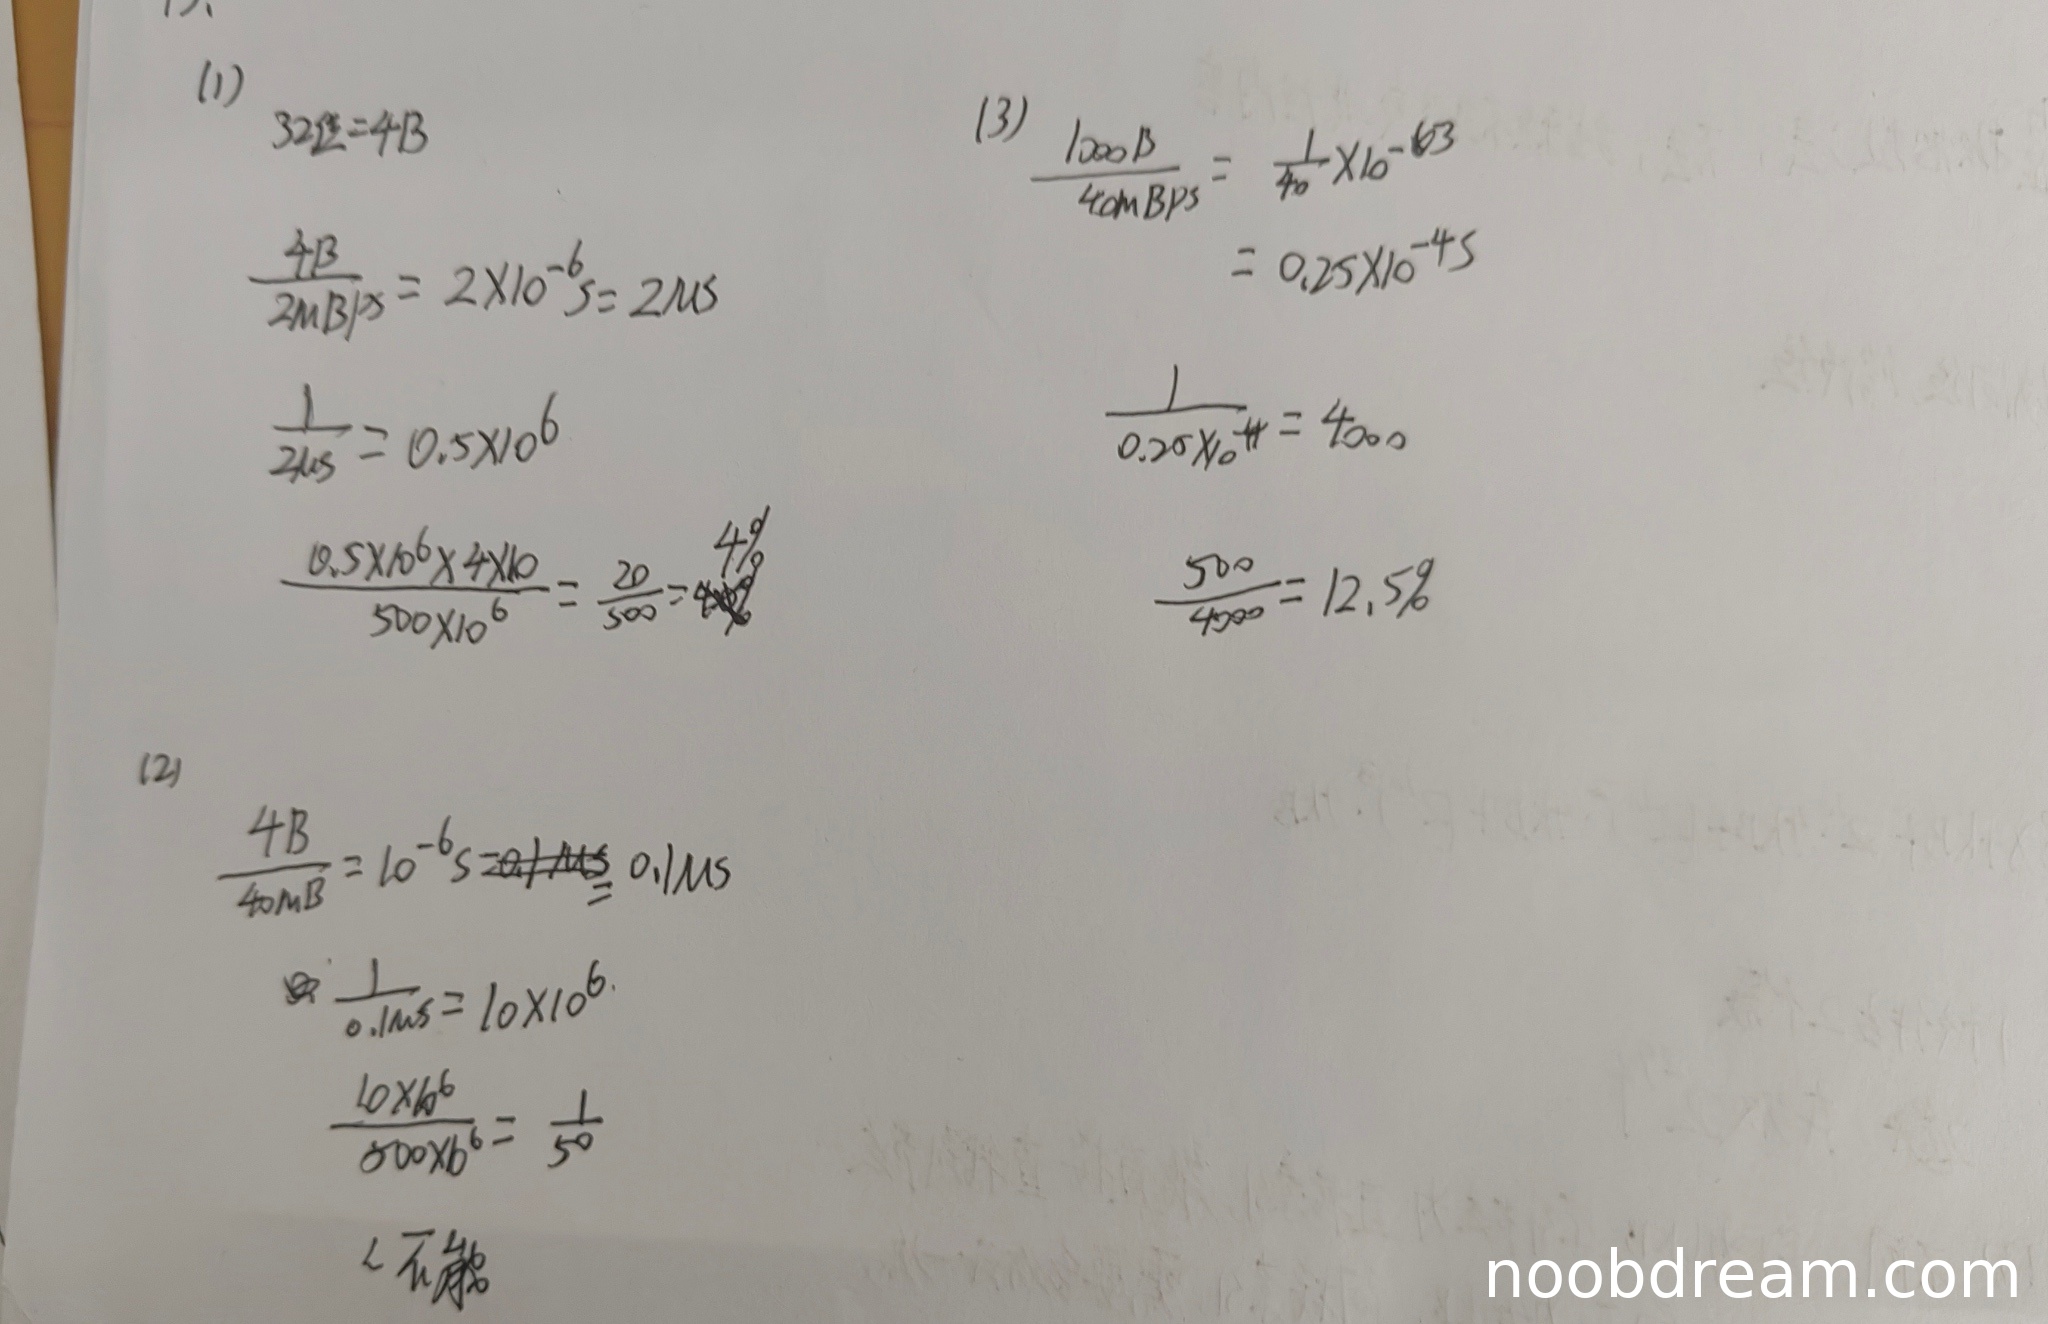 (1)
32位=4B
4B/2MBps = 2×10^-6 s = 2μs
1/2μs = 0.5×10^6
0.5×10^6×4×10/500×10^6 = 20/500 = 4%
(2)
4B/40MB = 10^-6 s = 0.1μs
1/0.1μs = 10×10^6.
10×10^6/500×10^6 = 1/50
不能
(3)
1000B/40MBps = 1/40 ×10^-3
= 0.25×10^-4 s
1/0.25×10^-4 = 4000
500/4000 = 12.5%
noobdream.com